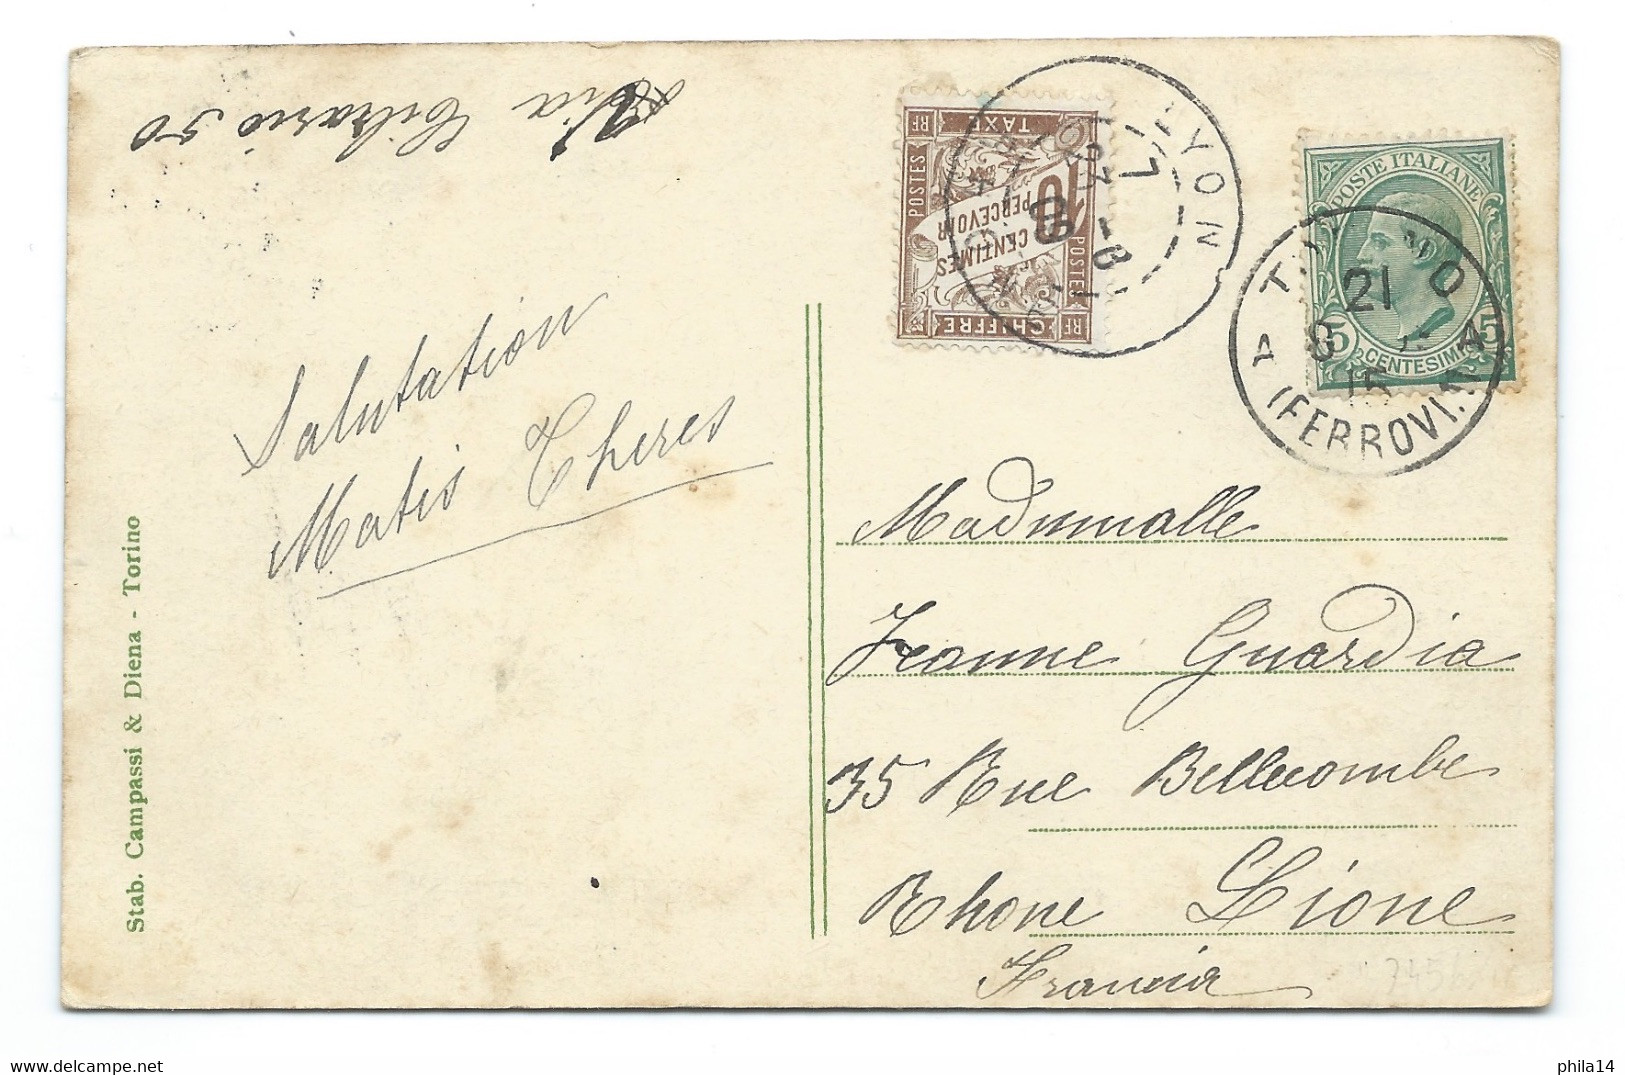 Via Cibrario 50
Salutation
Matis Theres
Stab. Campassi & Diena - Torino
RF TAXE
POSTES
10
CENTIMES
PERCEVOIR
POSTES
RF CHIFFRE
LYON
POSTE ITALIANE
5 CENTESIMI 5
21
8
15
(FERROVIA
Madumualle
Jeanne Guardia
35 Rue Bellecombe
Rhone Lione
Francia
phila14